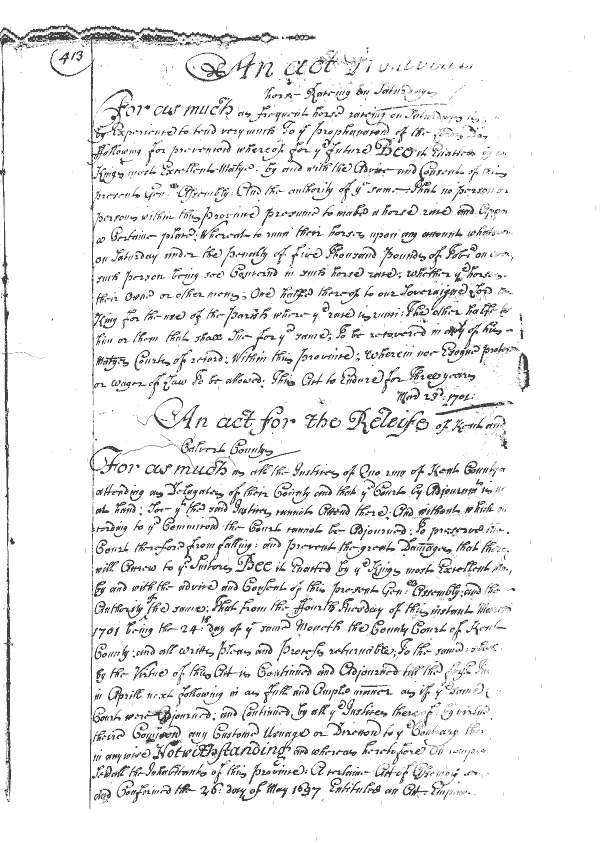 413
An act
horse Raceing on Saturdayes
For as much as frequent horse raceing on Saturdayes
by Experience to tend very much To yͤ prophanation of the
ffollowing for prevention whereof for yͤ future Bee it Enacted by
Kings most Excellent Matye: by and with the Advice and Consent of this
present Genͫ Assembly: And the authority of yͤ same That no person or
persons within this province presume to make a horse race and
a Certaine place: Whereat to runn their horses upon any amount whatsoever
on Saturday under the penalty of five Thousand Pounds of Tobͨ on every
such person being soe Concernd in such horse race: whether yͤ horses
their Owne or other mens: One halfe thereof to our Soveraigne Lord the
King for the use of the Parish where yͤ race is runn: The other halfe to
him or them that shall Sue for yͤ same, To be recovered in any of his
Matyes Courts of record: Within this province: wherein noe Essoyne protec
or wager of Law To be allowed: This Act to Endure for Three years
1701
An act for the Releife of Kent and
Calvert Countys
For as much as all the Justices of Quorum of Kent County
attending as Delegates of their County and that yͤ Court by Adjournmᵗ is
at hand: Soe yͤ the said Justices cannot Attend there: And without which
cording to yͤ Commicon the Court cannot be Adjourned: To preserve the
Court therefore from falling: and Prevent the great Damages that there
will Accrew to yͤ Suitors Bee it Enacted by yͤ Kings most Excellent
by and with the advice and Consent of this present Genͫ Assembly: and the
Authority the same: That from the ffourth Tuesday of this instant
1701 being the 24th day of yͤ same Moneth the County Court of Kent
County: and all writts pleas and Process returnable: To the same:
by the Virtue of this Act is Continued and Adjourned till the
in Aprill next following in as full and ample manner as if yͤ same
Court were Adjourned: and Continued by all yͤ Justices thereof by virtue
their any Custome Usuage or Direction to yͤ Contrary
in anywise Notwithstanding and whereas heretofore
all the Inhabitants of this province: A certaine Act of Assembly
and Confirmed the 26: day of May 1697 Entituled an Act